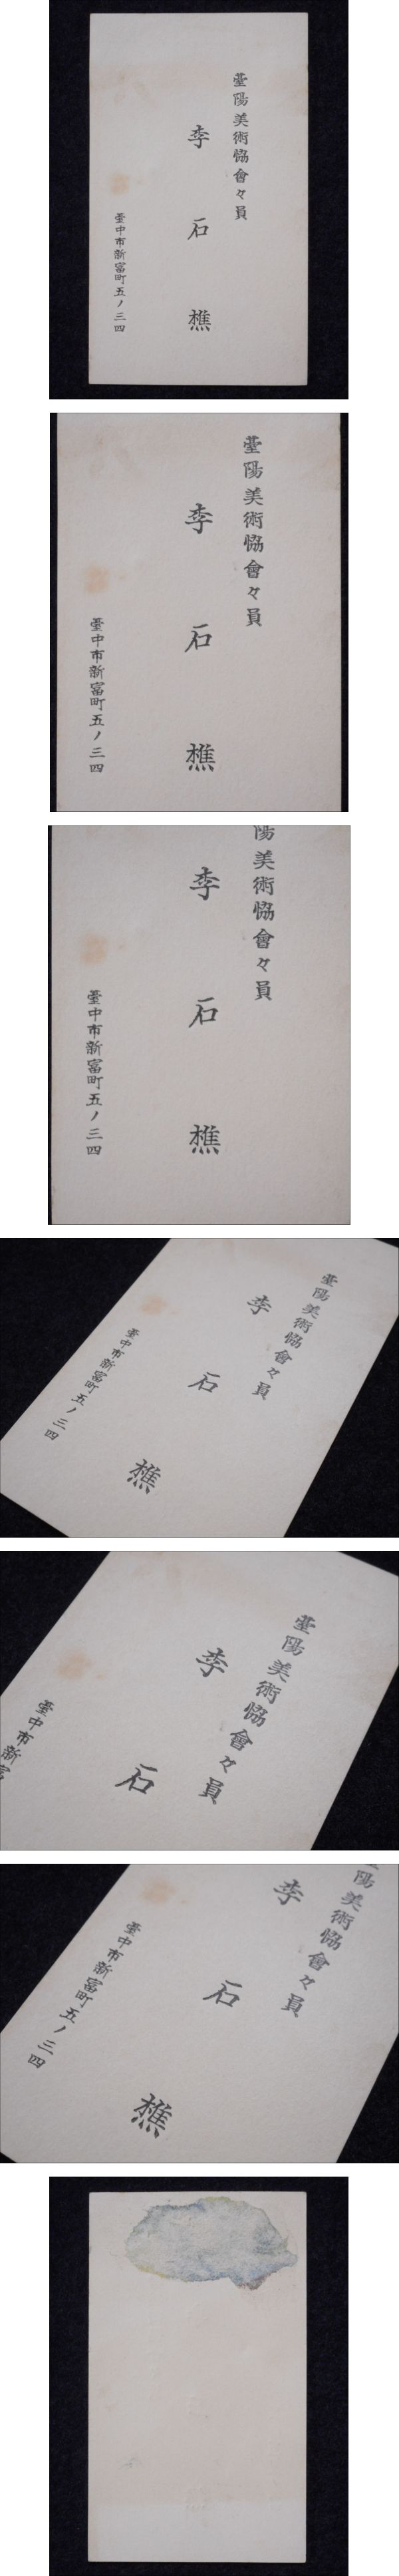 臺陽美術協會々員
李石樵
臺中市新富町五ノ三四
臺陽美術協會々員
李石樵
臺中市新富町五ノ三四
陽美術協會々員
李石樵
臺中市新富町五ノ三四
臺陽美術協會々員
李石樵
臺中市新富町五ノ三四
臺陽美術協會々員
李石
臺中市新富
陽美術協會々員
李石樵
臺中市新富町五ノ三四